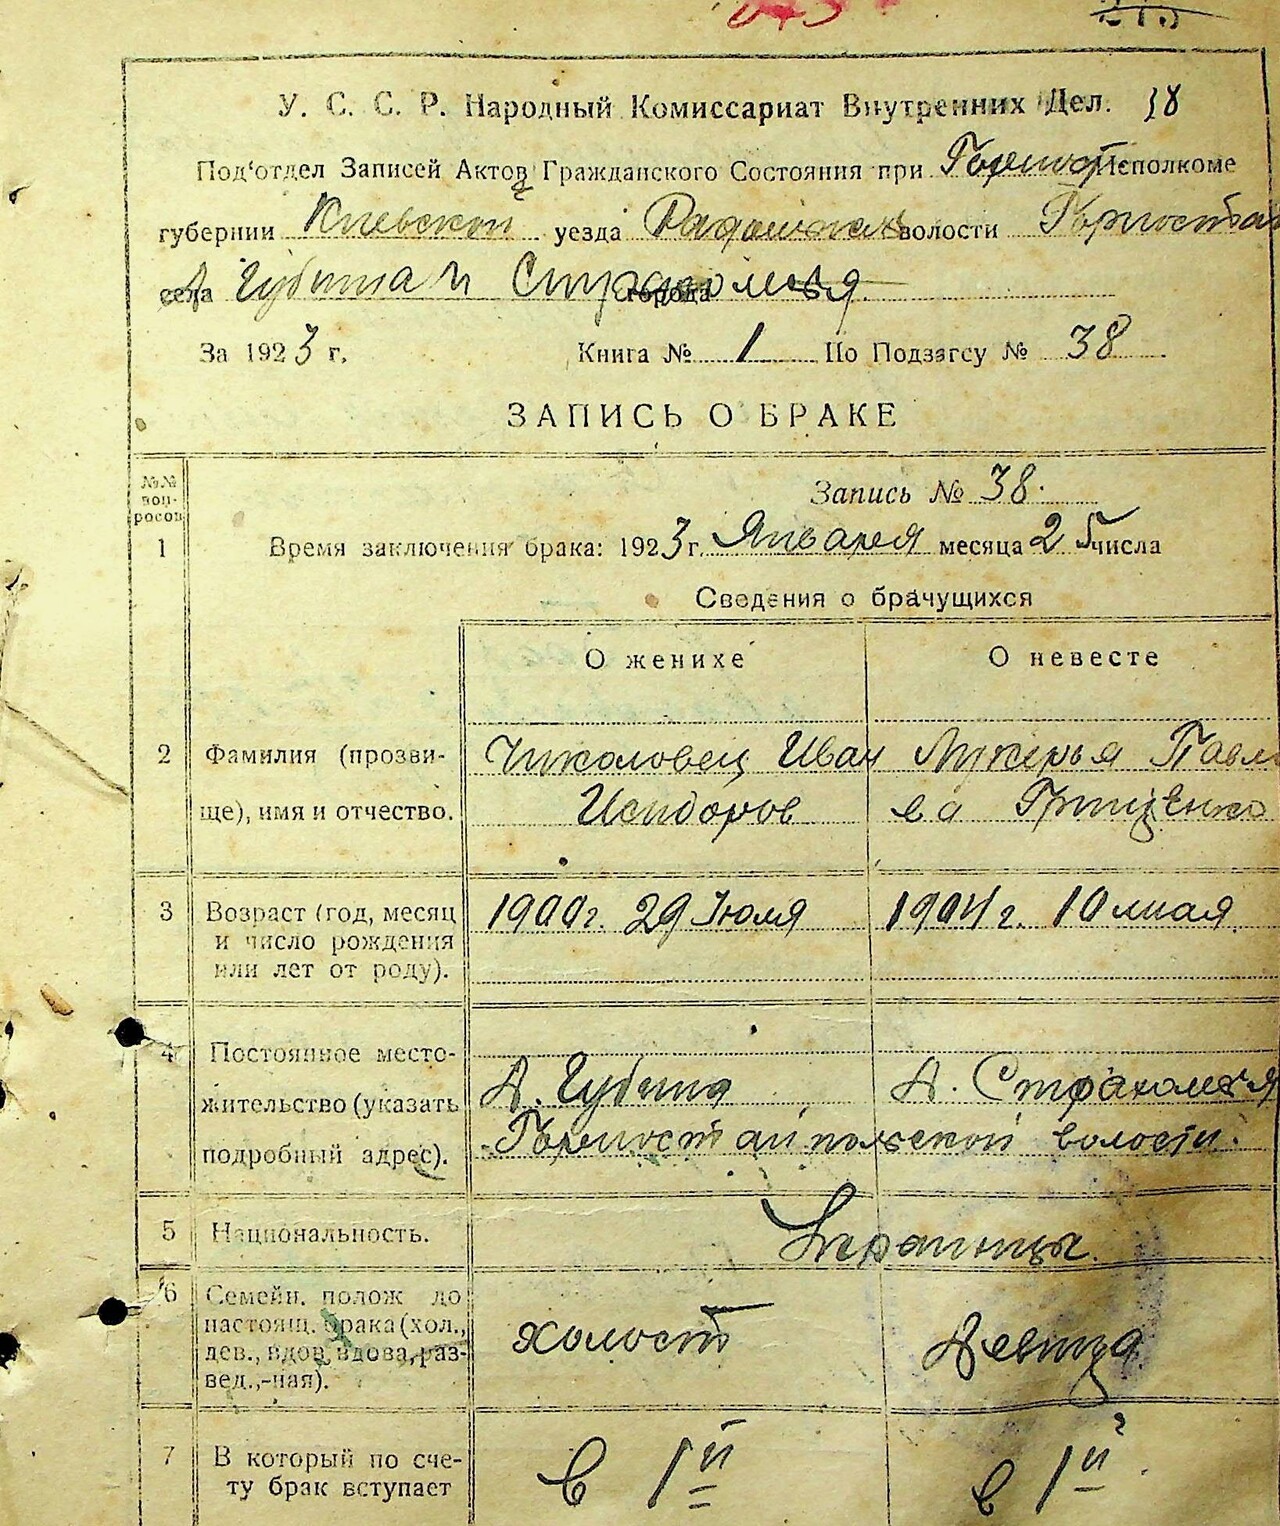 У. С. С. Р. Народный Комиссариат Внутренних Дел. 38
Под'отдел Записей Актов Гражданского Состояния при Горност Исполкоме
губернии Киевской уезда Радомысльс волости Горностай
села д Губина и Страхолесья города
За 1923 г. Книга № 1 По Подзагсу № 38
ЗАПИСЬ О БРАКЕ
№№ вопросов
Запись № 38.
1 Время заключения брака: 1923 г. Января месяца 25 числа
Сведения о брачущихся
О женихе О невесте
2 Фамилия (прозви- Чиколовец Иван Лукерья Павло
ще), имя и отчество. Исидоров ва Грищенко
3 Возраст (год, месяц 1900 г. 29 Июля 1904 г. 10 мая
и число рождения
или лет от роду).
4 Постоянное место-
жительство (указать д. Губина д. Страхолесья
подробный адрес). Горностайпольской волости.
5 Национальность. Украинцы.
6 Семейн. полож до
настоящ. брака (хол., холост девица
дев., вдов, вдова, раз-
вед.,-ная).
7 В который по сче- в 1й в 1й
ту брак вступает